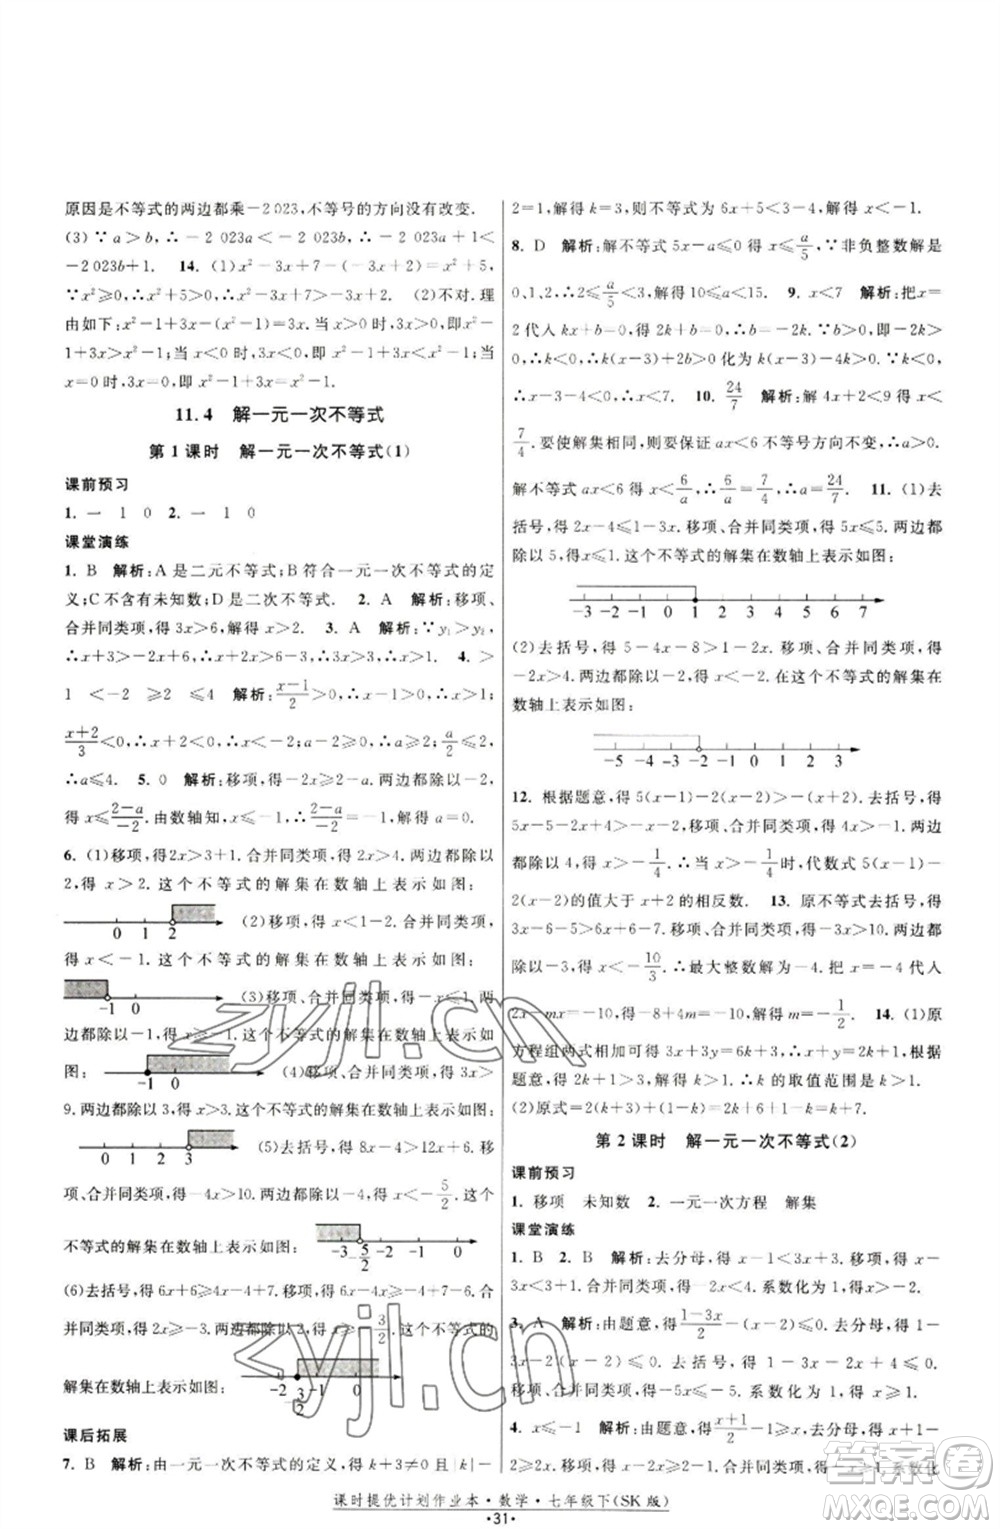 原因是不等式的两边都乘-2 023,不等号的方向没有改变.
(3)∵a>b,∴-2 023a<-2 023b,∴-2 023a+1<
-2 023b+1. 14. (1)x²-3x+7-(-3x+2)=x²+5,
∵x²≥0,∴x²+5>0,∴x²-3x+7>-3x+2. (2)不对.理
由如下:x²-1+3x-(x²-1+x)=2x,当x>0时,2x>0,即
x²-1+3x>x²-1+x;当x<0时,3x<x,即x²-1+3x<x²-1+x;当
x=0时,3x=x,即x²-1+3x=x²-1+x.
11.4 解一元一次不等式
第1课时 解一元一次不等式(1)
课前预习
1. 一 1 0 2. 一 1 0
课堂演练
1. B 解析:A是二元不等式;B符合一元一次不等式的定
义;C不含有未知数;D是二次不等式. 2. A 解析:移项、
合并同类项,得3x>6,解得x>2. 3. A 解析:∵y₁>y₂,
∴x+3>-2x+6,∴x+2x>6-3,∴3x>3,∴x>1. 4. >
1 <-2 ≥2 ≤4 解析:(x-1)/2>0,∴x-1>0,∴x>1;
(x+2)/3<0,∴x+2<0,∴x<-2;2-a≤0,∴a≥2;a/2≤2,
∴a≤4. 5. 0 解析:移项,得-2x≥2-a.两边都除以-2,
得x≤(2-a)/-2.由数轴知,(2-a)/-2=-1,解得a=0.
6. (1)移项,得2x>3+1.合并同类项,得2x>4.两边都除以
2,得x>2.这个不等式的解集在数轴上表示如图:
0 1 2 (2)移项,得x<1-2.合并同类项,
得x<-1.这个不等式的解集在数轴上表示如图:
-1 0 (3)移项、合并同类项,得-x≤1.两
边都除以-1,得x≥-1.这个不等式的解集在数轴上表示如
图: -1 0 (4)移项、合并同类项,得3x≥
9.两边都除以3,得x≥3.这个不等式的解集在数轴上表示如图:
0 1 2 3 (5)去括号,得8x-4>12x+6.移
项、合并同类项,得-4x>10.两边都除以-4,得x<-5/2.这个
不等式的解集在数轴上表示如图: -3 -5/2 -2 -1 0
(6)去括号,得6x+6≥4x-4+7.移项,得6x-4x≥-4+7-6.合
并同类项,得2x≥-3.两边都除以2,得x≥-3/2.这个不等式的
解集在数轴上表示如图: -2 -3/2 -1 0
课后拓展
7. B 解析:由一元一次不等式的定义,得k+3≠0且|k|-
2=1,解得k=3,则不等式为6x+5<3-4,解得x<-1.
8. D 解析:解不等式5x-a≤0得x≤a/5,∵非负整数解是
0,1,2,∴2≤a/5<3,∴10≤a<15. 9. x<7 解析:把x=
2代入kx+b=0,得2k+b=0,∴b=-2k.∵y随x增大而减小,
∴k<0,∴k(x-3)+2b>0化为k(x-3)-4k>0,
∴x-3-4<0,∴x<7. 10. 24/7 解析:解4x+2<9得x<
7/4.要使解集相同,则要保证ax<6两边除以a时不等号不变向,
解不等式ax<6得x<6/a,∴6/a=7/4,∴a=24/7. 11. (1)去
括号,得2x-4≤1-3x.移项、合并同类项,得5x≤5.两边都
除以5,得x≤1.这个不等式的解集在数轴上表示如图:
-3 -2 -1 0 1 2 3 4 5 6 7
(2)去括号,得5-4x-8>1-2x.移项、合并同类项,得
-2x>4.两边都除以-2,得x<-2.在这个不等式的解集在
数轴上表示如图:
-5 -4 -3 -2 -1 0 1 2 3
12. 根据题意,得5(x-1)-2(x-2)>-(x+2).去括号,得
5x-5-2x+4>-x-2,移项、合并同类项,得4x>-1.两边
都除以4,得x>-1/4.∴当x>-1/4时,代数式5(x-1)-
2(x-2)的值大于x+2的相反数. 13. 原不等式去括号,得
3x-6-5<5x-5-6x-10.移项、合并同类项,得
x<-10/3.∴最大整数解为x=-4.把x=-4代入
2x-mx=-10,得-8+4m=-10,解得m=-1/2. 14. (1)原
方程组两式相加可得3x+3y=6k+3,即x+y=2k+1.根据
题意,得2k+1>-1,解得k>-1.∴k的取值范围是k>-1.
(2)原式=2(k+3)-(k+1)=2k+6-k+1=k+7.
第2课时 解一元一次不等式(2)
课前预习
1. 移项 未知数 2. 一元一次方程 解集
课堂演练
1. B 2. B 解析:去分母,得x-1<3x+3.移项,得x-
3x<3+1.合并同类项,得-2x<4.系数化为1,得x>-2.
3. A 解析:由题意,得(1-3x)/2-(-x)≤0,去分母,得1-
3x-2(-x)≤0.去括号,得1-3x+2x≤0.移项,得-3x+2x≤
-1.合并同类项,得-x≤-1.系数化为1,得x≥1.
4. x≤-1 解析:由题意,得(x+1)/2-1≥x,去分母,得x+1
-2≥2x.移项,得x-2x≥2-1.合并同类项,得-x≥1.系数化
课时提优计划作业本·数学·七年级下(SK版)
·31·
zyjl.cn
zyjl.cn
答案圈
MXQE.COM